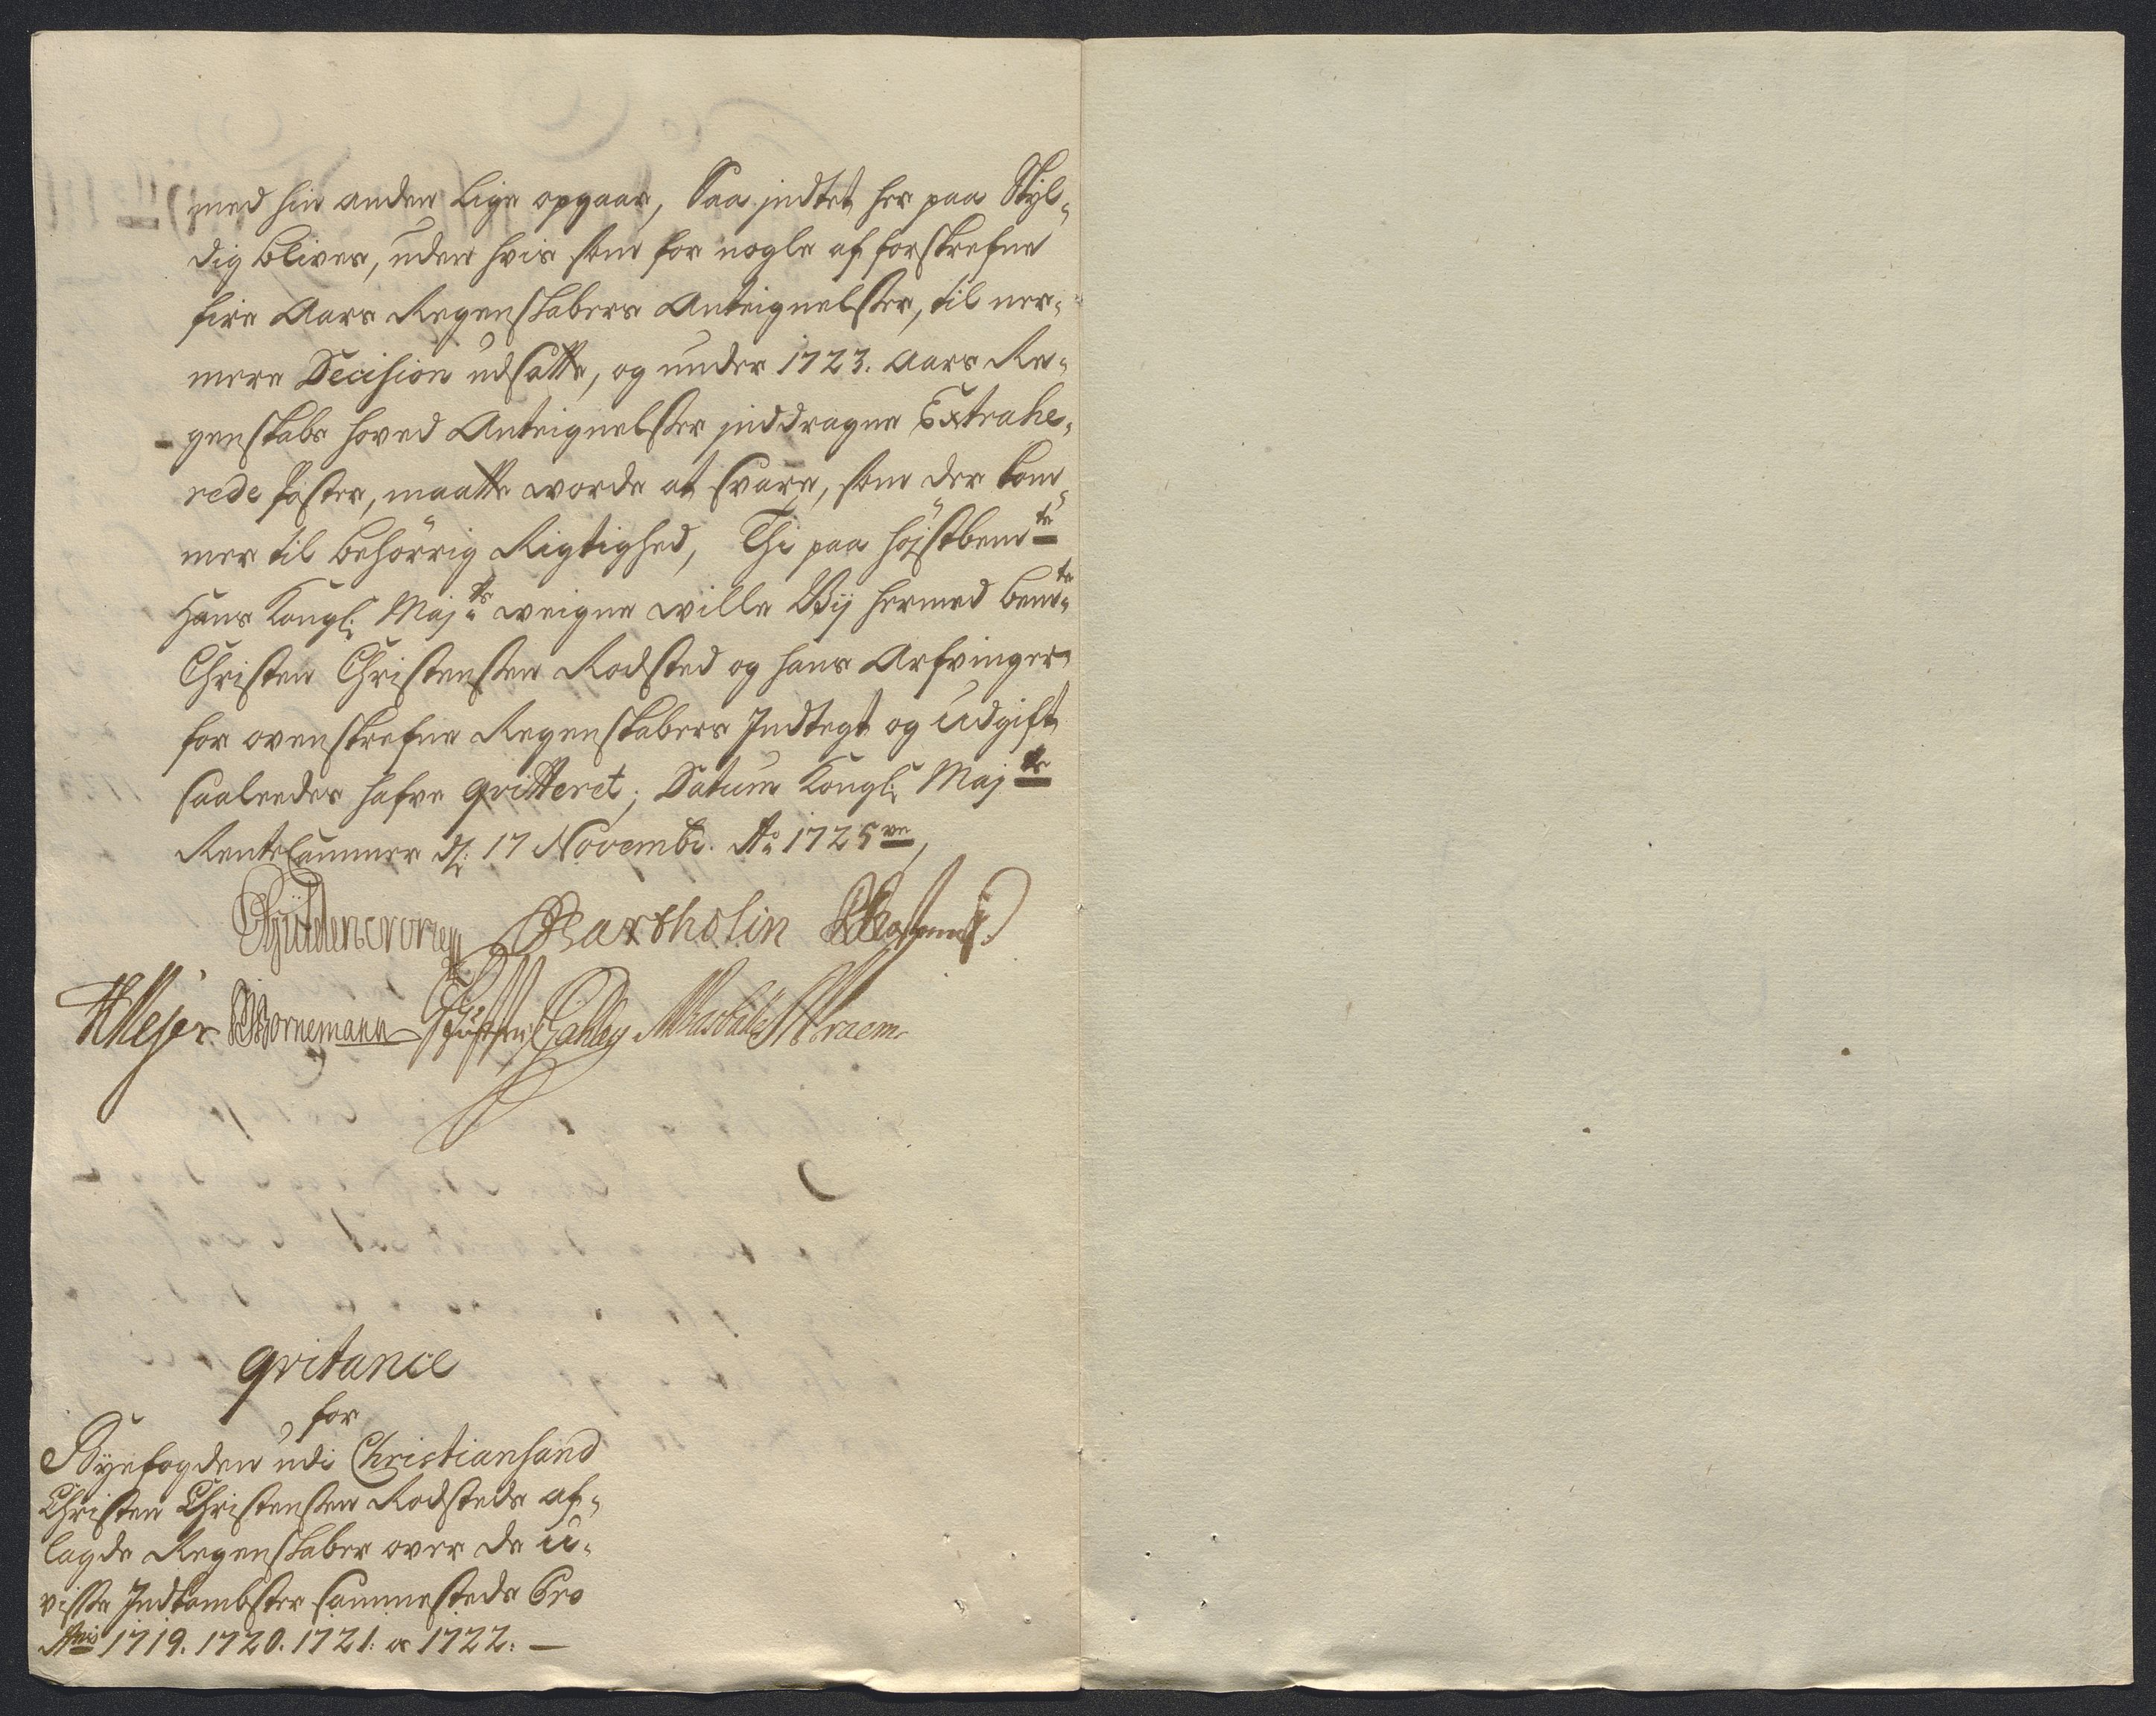 med hin anden lige opgaar, Saa indtet her paa Skyl-
dig bliver, uden hvis som for nogle af forskrefne
fire Aars Regenskabers Anteignelser, til ner-
mere Decision udsatte, og under 1723. Aars Re-
genskabs hoved Anteignelser inddragne Extrahe-
rede Poster, maatte worde at svare, som der kom-
mer til behörrig Rigtighed, Thi paa höjstbemte
Hans Kongl: Majts weigne wille Wij hermed bemte
Christen Christensen Rodsted og hans Arfvinger
for ovenskrefne Regenskabers Indtegt og Udgift
saaleedes hafve qvitteret; Datum Kongl: Majts
RenteCammer d: 17 Novembr. Ao 1725ve,
Gyldencrone Bartholin
HMejer Bornemann
qvitance
for
Byefogden udi Christiansand
Christen Christensen Rodsteds af-
lagde Regenskaber over de u-
visse Indkombster sammesteds Pro
Anis 1719. 1720. 1721. og 1722. —